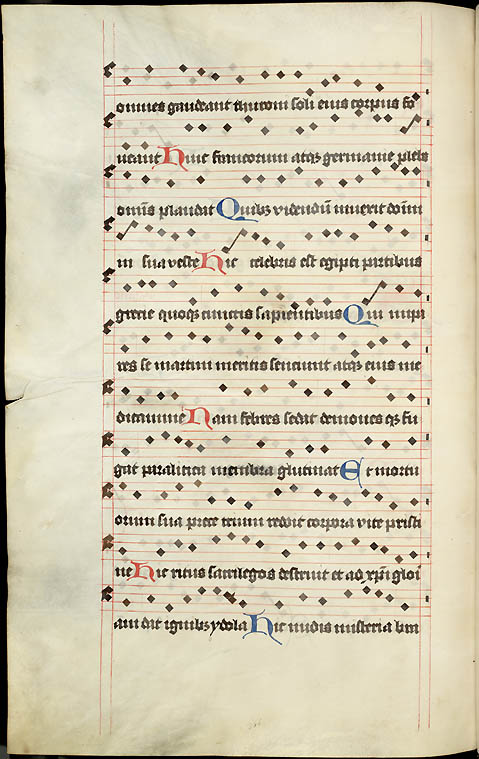 omnes gaudeant turoni soli eius corpus fo
ueant Huic francorum atq; germanie plebs
om̄is plaudat Quib; videndū inuexit dominū
in sua veste Hic celebris est egipti partibus
grecie quoq; cunctis sapientibus Qui impa
res se martini meritis sentiunt atq; eius me
dicamine Nam febres sedat demones q; fu
gat paralitica membra glutinat Et mortu
orum sua prece trium reddit corpora vite pristi
ne Hic ritus sacrilegos destruit et ad xp̄i glori
am dat ignib; ydola Hic nudis misteria bra